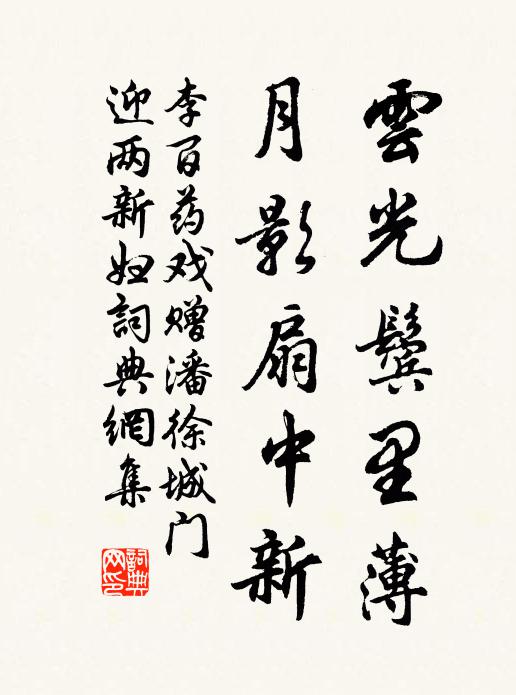 雲光鬓里薄
月影扇中新
李百药戏赠潘徐城门
迎两新妇詞典網集
詞典
网印